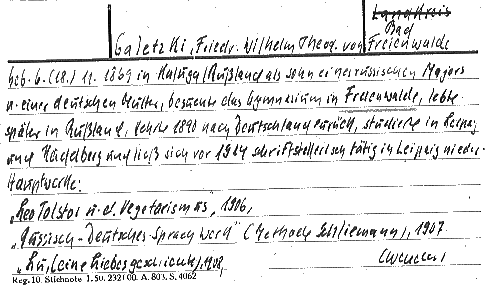 Landkreis
Bad
Galetzki, Friedr. Wilhelm Theod. von Freienwalde
geb. 6. (18.) 11. 1869 in Kaluga/Rußland als Sohn eines russischen Majors
u. einer deutschen Mutter, besuchte das Gymnasium in Freienwalde, lebte
später in Rußland, kehrte 1890 nach Deutschland zurück, studierte in Leipzig
und Heidelberg und ließ sich vor 1904 schriftstellerisch tätig in Leipzig nieder.
Hauptwerke:
"Leo Tolstoi u. d. Vegetarismus", 1906,
"Russisch-Deutsches Sprach Werk" (Methode Schliemann), 1907
(eine Liebesgeschichte), 1908,
Reg. 10. Stichnote 1. 50. 2321 00. A. 803. S. 4062